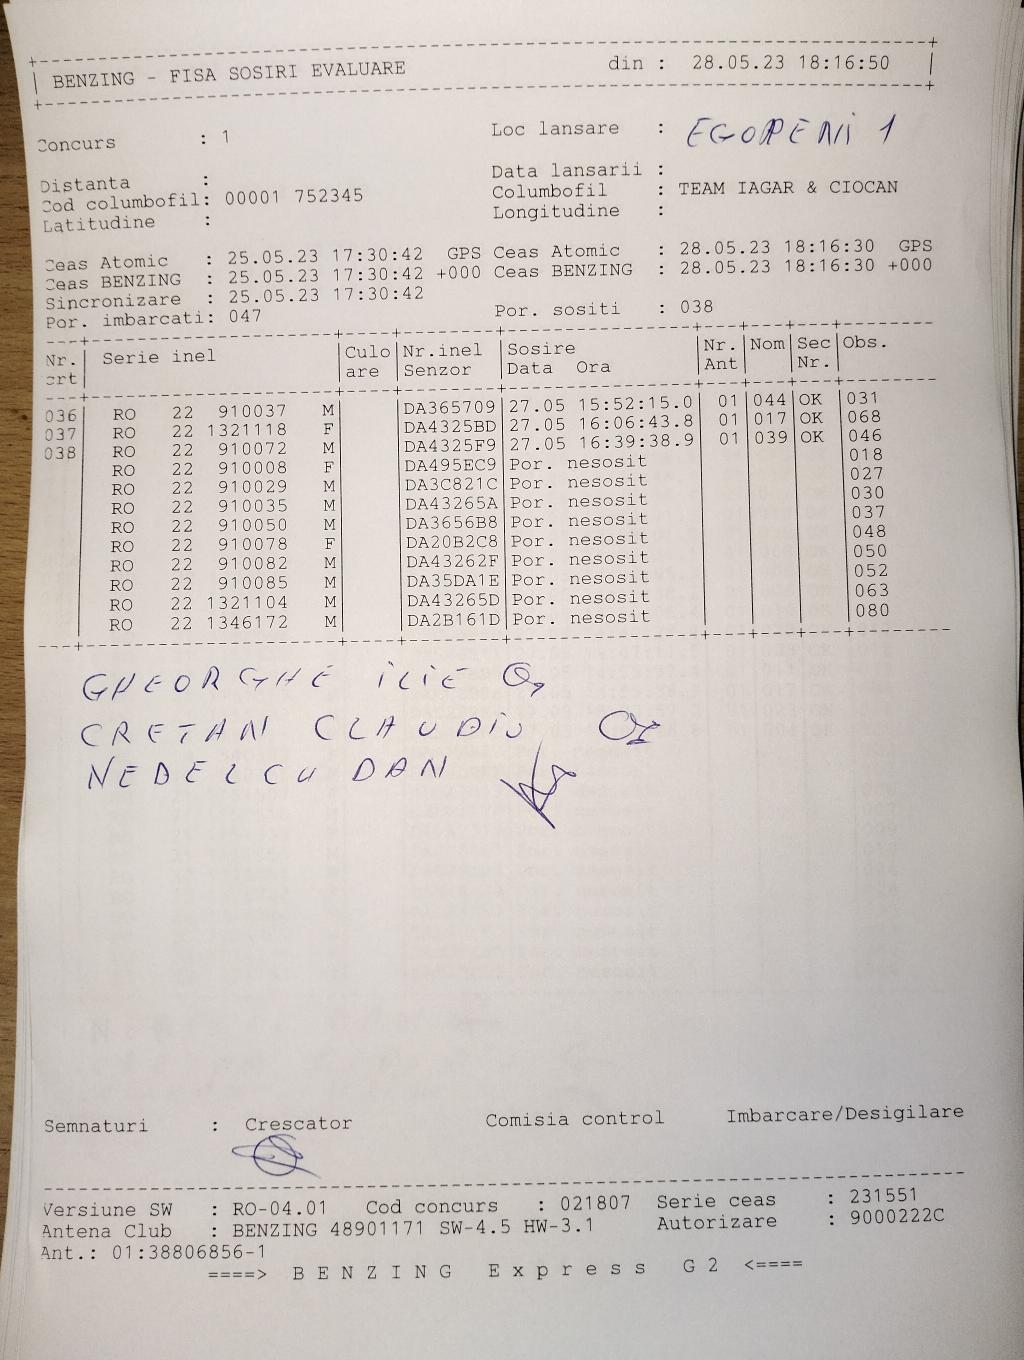 BENZING - FISA SOSIRI EVALUARE din : 28.05.23 18:16:50
Concurs : 1 Loc lansare : EGORPENI 1
Distanta : Data lansarii :
Cod columbofil: 00001 752345 Columbofil : TEAM IAGAR & CIOCAN
Latitudine : Longitudine :
Ceas Atomic : 25.05.23 17:30:42 GPS Ceas Atomic : 28.05.23 18:16:30 GPS
Ceas BENZING : 25.05.23 17:30:42 +000 Ceas BENZING : 28.05.23 18:16:30 +000
Sincronizare : 25.05.23 17:30:42
Por. imbarcati: 047 Por. sositi : 038
Nr. Serie inel Culo Nr.inel Sosire Nr. Nom Sec Obs.
crt are Senzor Data Ora Ant Nr.
036 RO 22 910037 M DA365709 27.05 15:52:15.0 01 044 OK 031
037 RO 22 1321118 F DA4325BD 27.05 16:06:43.8 01 017 OK 068
038 RO 22 910072 M DA4325F9 27.05 16:39:38.9 01 039 OK 046
RO 22 910008 F DA495EC9 Por. nesosit 018
RO 22 910029 M DA3C821C Por. nesosit 027
RO 22 910035 M DA43265A Por. nesosit 030
RO 22 910050 M DA3656B8 Por. nesosit 037
RO 22 910078 F DA20B2C8 Por. nesosit 048
RO 22 910082 M DA43262F Por. nesosit 050
RO 22 910085 M DA35DA1E Por. nesosit 052
RO 22 1321104 M DA43265D Por. nesosit 063
RO 22 1346172 M DA2B161D Por. nesosit 080
GHEORGHE ILIE
CRETAN CLAUDIU
NEDELCU DAN
Semnaturi : Crescator Comisia control Imbarcare/Desigilare
Versiune SW : RO-04.01 Cod concurs : 021807 Serie ceas : 231551
Antena Club : BENZING 48901171 SW-4.5 HW-3.1 Autorizare : 9000222C
Ant.: 01:38806856-1
====> B E N Z I N G E x p r e s s G 2 <====